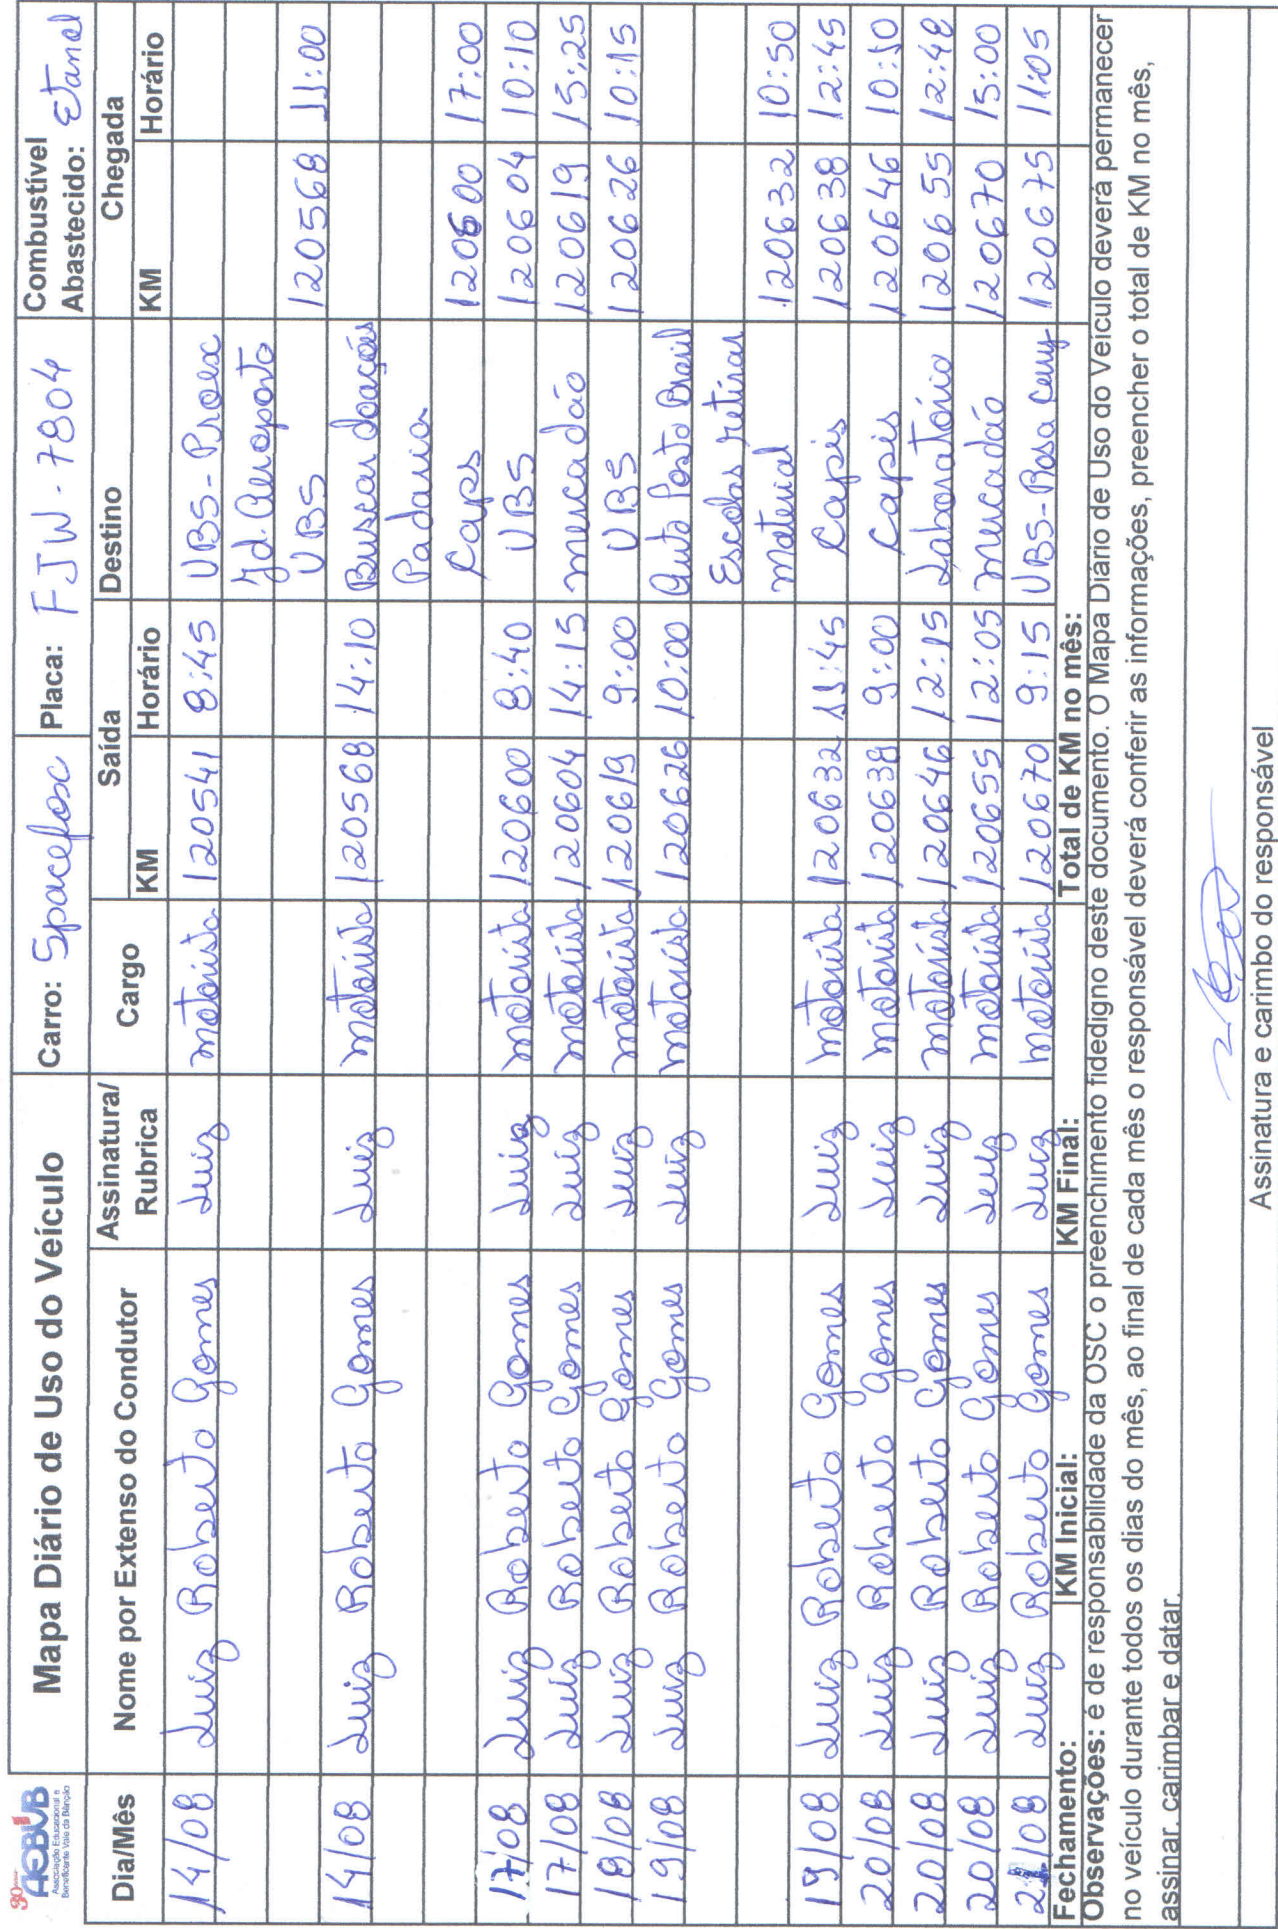 30 anos
AEBVB
Associação Educacional e
Beneficente Vale da Bênção
Mapa Diário de Uso do Veículo
Carro: Spacefox Placa: FJW-7804 Combustível Abastecido: Etanol
Dia/Mês Nome por Extenso do Condutor Assinatura/Rubrica Cargo Saída Destino Chegada
KM Horário KM Horário
14/08 Luiz Roberto Gomes Luiz motorista 120541 8:45 UBS-Proex
Jd. Aeroporto
UBS 120568 11:00
14/08 Luiz Roberto Gomes Luiz motorista 120568 14:10 Buscar doações
Padaria
Caps 120600 17:00
17/08 Luiz Roberto Gomes Luiz motorista 120600 8:40 UBS 120604 10:10
17/08 Luiz Roberto Gomes Luiz motorista 120604 14:15 mercadão 120619 15:25
19/08 Luiz Roberto Gomes Luiz motorista 120619 9:00 UBS 120626 10:15
19/08 Luiz Roberto Gomes Luiz motorista 120626 10:00 Auto Posto Brasil
Escolas retirar
material 120632 10:50
19/08 Luiz Roberto Gomes Luiz motorista 120632 11:45 Capis 120638 12:45
20/08 Luiz Roberto Gomes Luiz motorista 120638 9:00 Capis 120646 10:50
20/08 Luiz Roberto Gomes Luiz motorista 120646 12:15 Laboratório 120655 12:48
20/08 Luiz Roberto Gomes Luiz motorista 120655 12:05 mercadão 120670 15:00
21/08 Luiz Roberto Gomes Luiz motorista 120670 9:15 UBS-Rosa 120675 11:05
Fechamento: KM Inicial: KM Final: Total de KM no mês:
Observações: é de responsabilidade da OSC o preenchimento fidedigno deste documento. O Mapa Diário de Uso do Veículo deverá permanecer
no veículo durante todos os dias do mês, ao final de cada mês o responsável deverá conferir as informações, preencher o total de KM no mês,
assinar, carimbar e datar.
Assinatura e carimbo do responsável